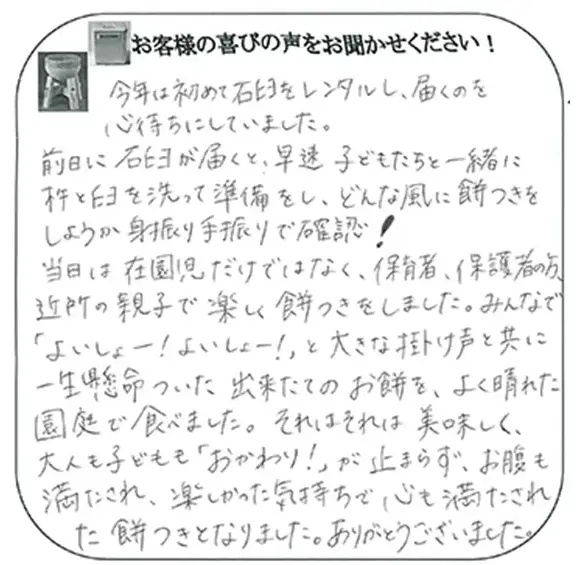 お客様の喜びの声をお聞かせください！
今年は初めて石臼をレンタルし、届くのを
心待ちにしていました。
前日に石臼が届くと、早速子どもたちと一緒に
杵と臼を洗って準備をし、どんな風に餅つきを
しようか身振り手振りで確認！
当日は在園児だけではなく、保育者、保護者の方、
近所の親子で楽しく餅つきをしました。みんなで
「よいしょー！よいしょー！」と大きな掛け声と共に
一生懸命ついた出来たてのお餅を、よく晴れた
園庭で食べました。それはそれは美味しく、
大人も子どもも「おかわり！」が止まらず、お腹も
満たされ、楽しかった気持ちで心も満たされ
た餅つきとなりました。ありがとうございました。